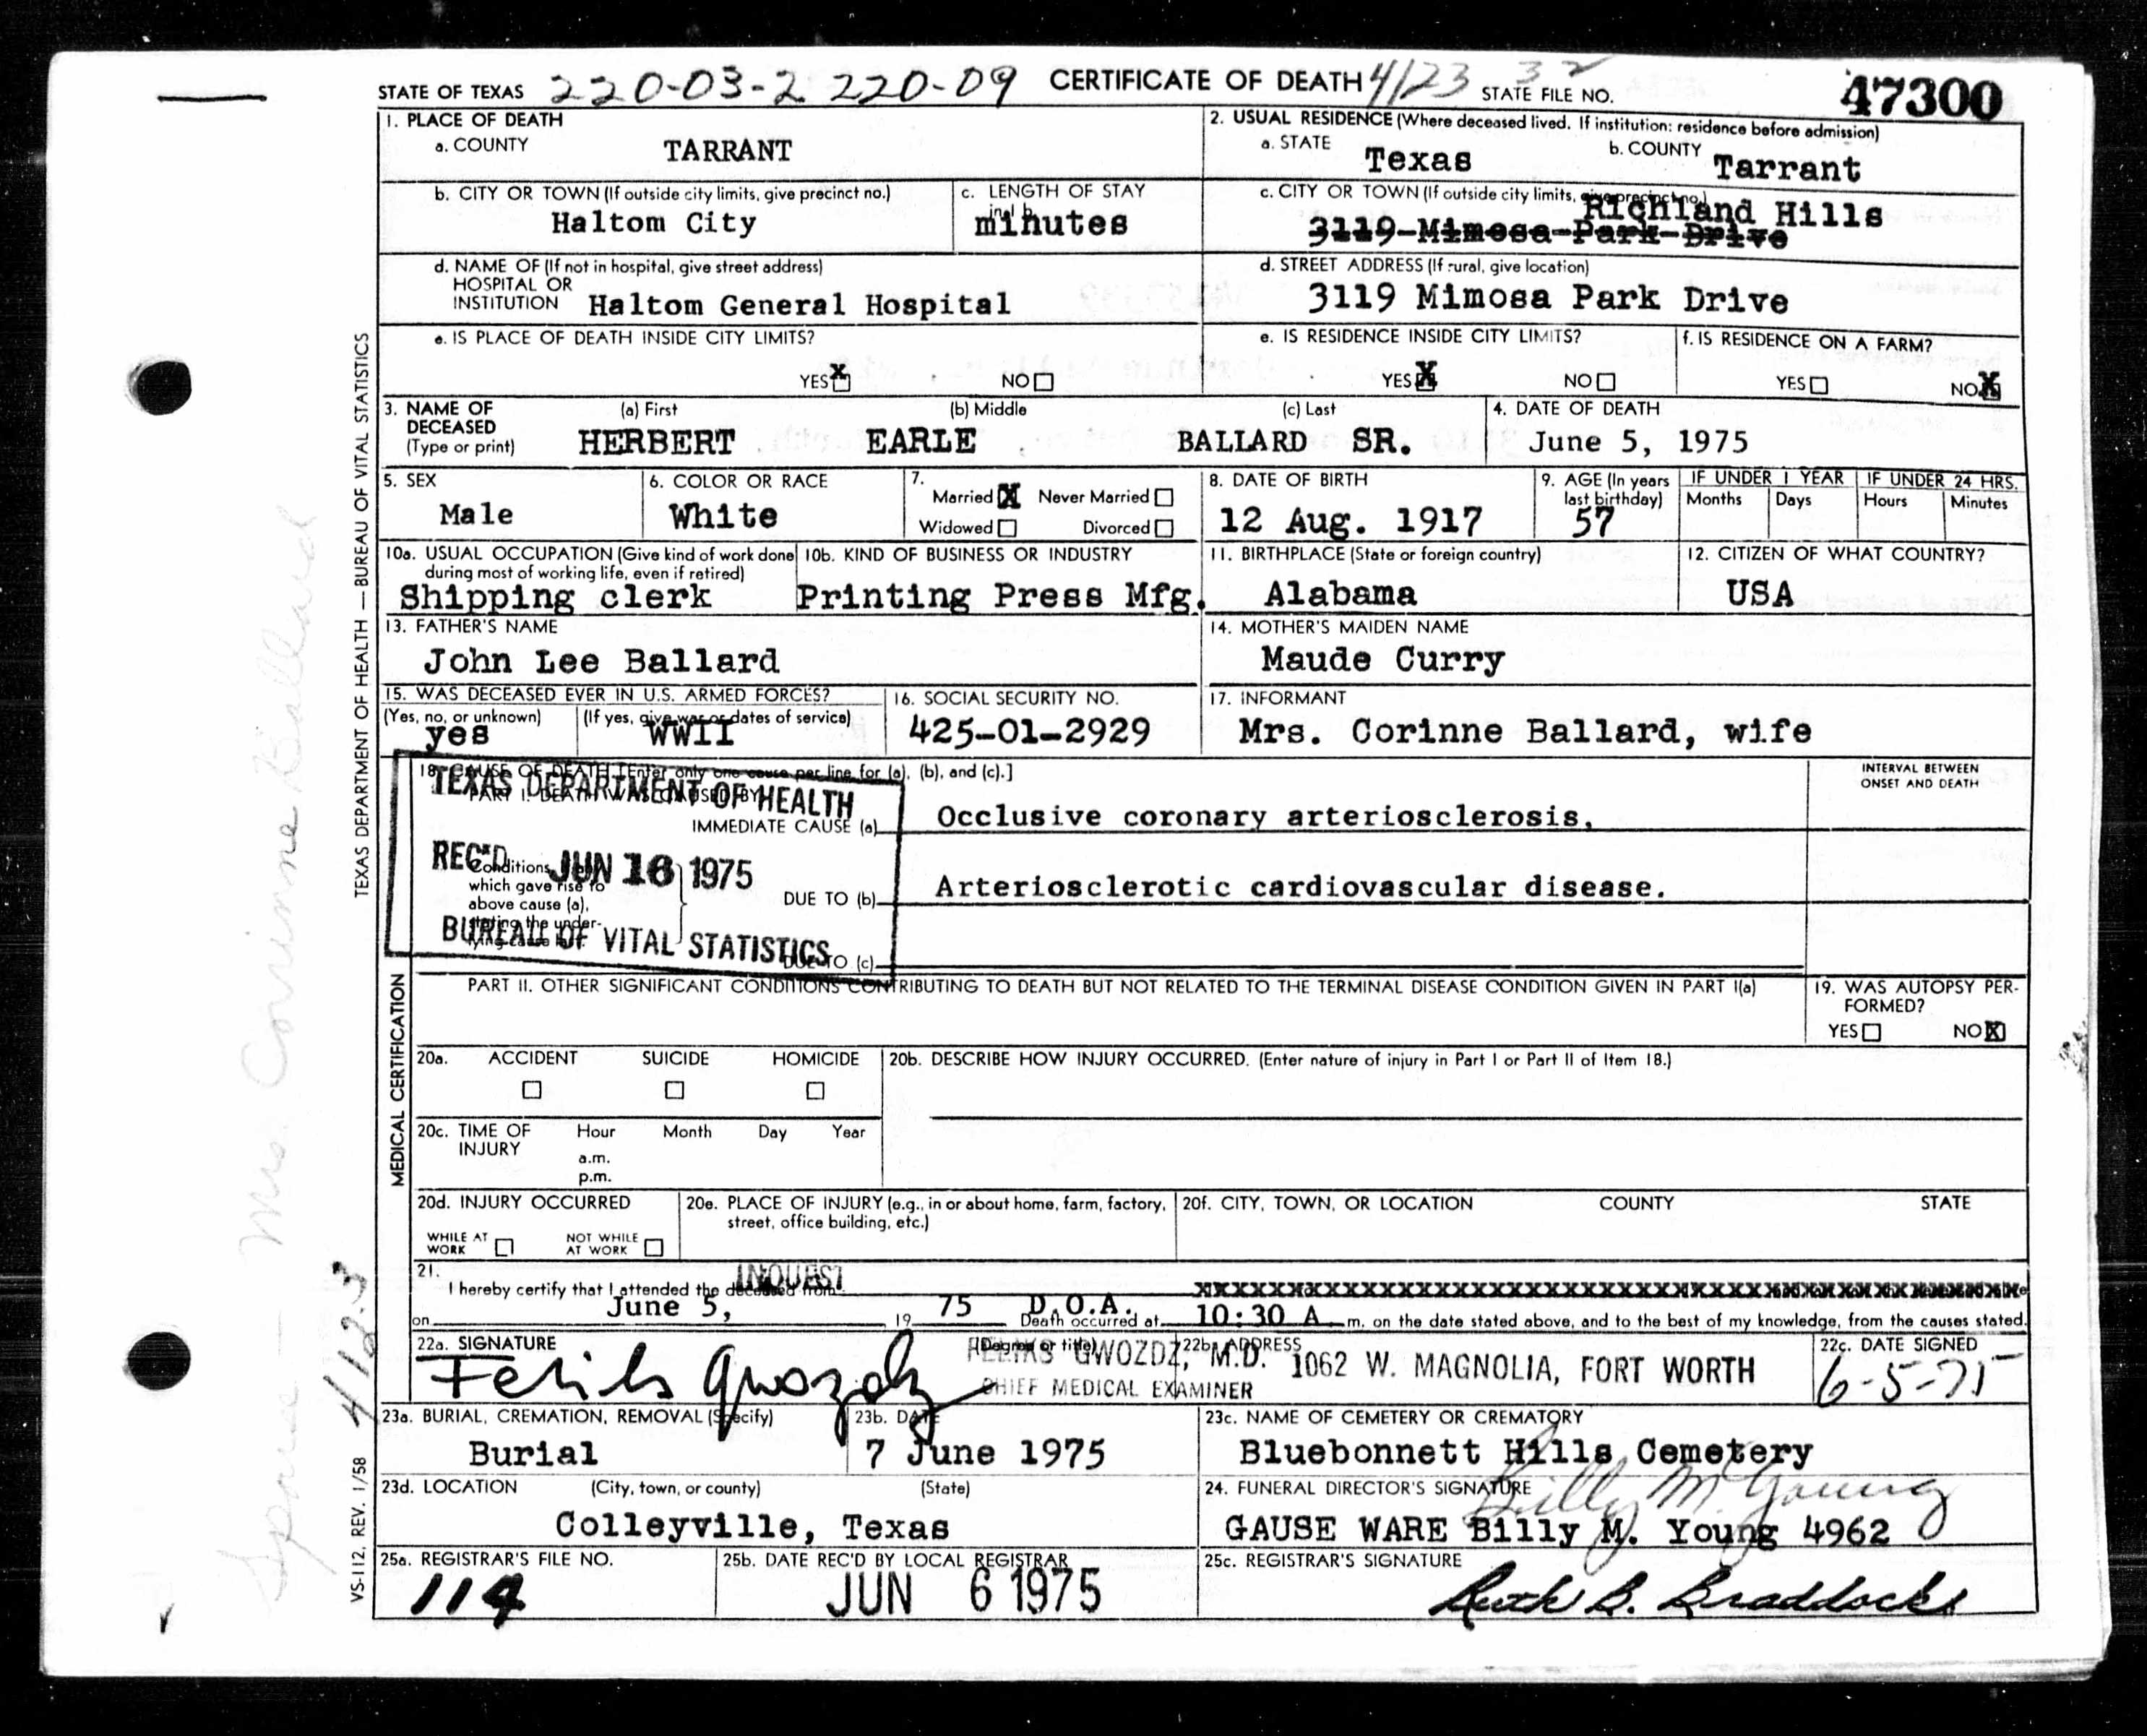 STATE OF TEXAS 220-03-2 220-09 CERTIFICATE OF DEATH 4123 32 STATE FILE NO. 47300
1. PLACE OF DEATH
a. COUNTY TARRANT
2. USUAL RESIDENCE (Where deceased lived. If institution: residence before admission)
a. STATE Texas b. COUNTY Tarrant
b. CITY OR TOWN (If outside city limits, give precinct no.) Haltom City
c. LENGTH OF STAY minutes
c. CITY OR TOWN (If outside city limits, give precinct no.) Richland Hills
3119 Mimosa Park Drive
d. NAME OF (If not in hospital, give street address)
HOSPITAL OR
INSTITUTION Haltom General Hospital
d. STREET ADDRESS (If rural, give location)
3119 Mimosa Park Drive
e. IS PLACE OF DEATH INSIDE CITY LIMITS?
YES X NO
e. IS RESIDENCE INSIDE CITY LIMITS?
YES X NO
f. IS RESIDENCE ON A FARM?
YES NO X
3. NAME OF DECEASED (Type or print)
(a) First (b) Middle (c) Last
HERBERT EARLE BALLARD SR.
4. DATE OF DEATH
June 5, 1975
5. SEX
Male
6. COLOR OR RACE
White
7.
Married X Never Married
Widowed Divorced
8. DATE OF BIRTH
12 Aug. 1917
9. AGE (In years last birthday)
57
IF UNDER 1 YEAR IF UNDER 24 HRS.
Months Days Hours Minutes
10a. USUAL OCCUPATION (Give kind of work done
during most of working life, even if retired)
Shipping clerk
10b. KIND OF BUSINESS OR INDUSTRY
Printing Press Mfg.
11. BIRTHPLACE (State or foreign country)
Alabama
12. CITIZEN OF WHAT COUNTRY?
USA
13. FATHER'S NAME
John Lee Ballard
14. MOTHER'S MAIDEN NAME
Maude Curry
15. WAS DECEASED EVER IN U.S. ARMED FORCES?
(Yes, no, or unknown) (If yes, give war or dates of service)
yes WWII
16. SOCIAL SECURITY NO.
425-01-2929
17. INFORMANT
Mrs. Corinne Ballard, wife
18. CAUSE OF DEATH [Enter only one cause per line for (a), (b), and (c).]
PART I. DEATH WAS CAUSED BY:
IMMEDIATE CAUSE (a) Occlusive coronary arteriosclerosis.
INTERVAL BETWEEN
ONSET AND DEATH
TEXAS DEPARTMENT OF HEALTH
REC'D JUN 16 1975
BUREAU OF VITAL STATISTICS
Conditions
which gave rise to
above cause (a),
stating the under-
lying cause last.
DUE TO (b) Arteriosclerotic cardiovascular disease.
DUE TO (c)
PART II. OTHER SIGNIFICANT CONDITIONS CONTRIBUTING TO DEATH BUT NOT RELATED TO THE TERMINAL DISEASE CONDITION GIVEN IN PART I(a)
19. WAS AUTOPSY PER-
FORMED?
YES NO X
20a. ACCIDENT SUICIDE HOMICIDE
20b. DESCRIBE HOW INJURY OCCURRED. (Enter nature of injury in Part I or Part II of Item 18.)
20c. TIME OF INJURY
Hour Month Day Year
a.m.
p.m.
20d. INJURY OCCURRED
WHILE AT WORK NOT WHILE AT WORK
20e. PLACE OF INJURY (e.g., in or about home, farm, factory,
street, office building, etc.)
20f. CITY, TOWN, OR LOCATION COUNTY STATE
21.
I hereby certify that I attended the deceased from INQUEST
on June 5, 19 75 D.O.A. Death occurred at 10:30 A m. on the date stated above, and to the best of my knowledge, from the causes stated.
22a. SIGNATURE
Feliks Gwozdz
(Degree or title)
FELIKS GWOZDZ, M.D.
CHIEF MEDICAL EXAMINER
22b. ADDRESS
1062 W. MAGNOLIA, FORT WORTH
22c. DATE SIGNED
6-5-75
23a. BURIAL, CREMATION, REMOVAL (Specify)
Burial
23b. DATE
7 June 1975
23c. NAME OF CEMETERY OR CREMATORY
Bluebonnett Hills Cemetery
23d. LOCATION (City, town, or county) (State)
Colleyville, Texas
24. FUNERAL DIRECTOR'S SIGNATURE
Billy M Young
GAUSE WARE Billy M. Young 4962
25a. REGISTRAR'S FILE NO.
114
25b. DATE REC'D BY LOCAL REGISTRAR
JUN 6 1975
25c. REGISTRAR'S SIGNATURE
Ruth B. Braddocks
TEXAS DEPARTMENT OF HEALTH — BUREAU OF VITAL STATISTICS
MEDICAL CERTIFICATION
VS-112, REV. 1/58
4123
Spouse — Mrs Corinne Ballard